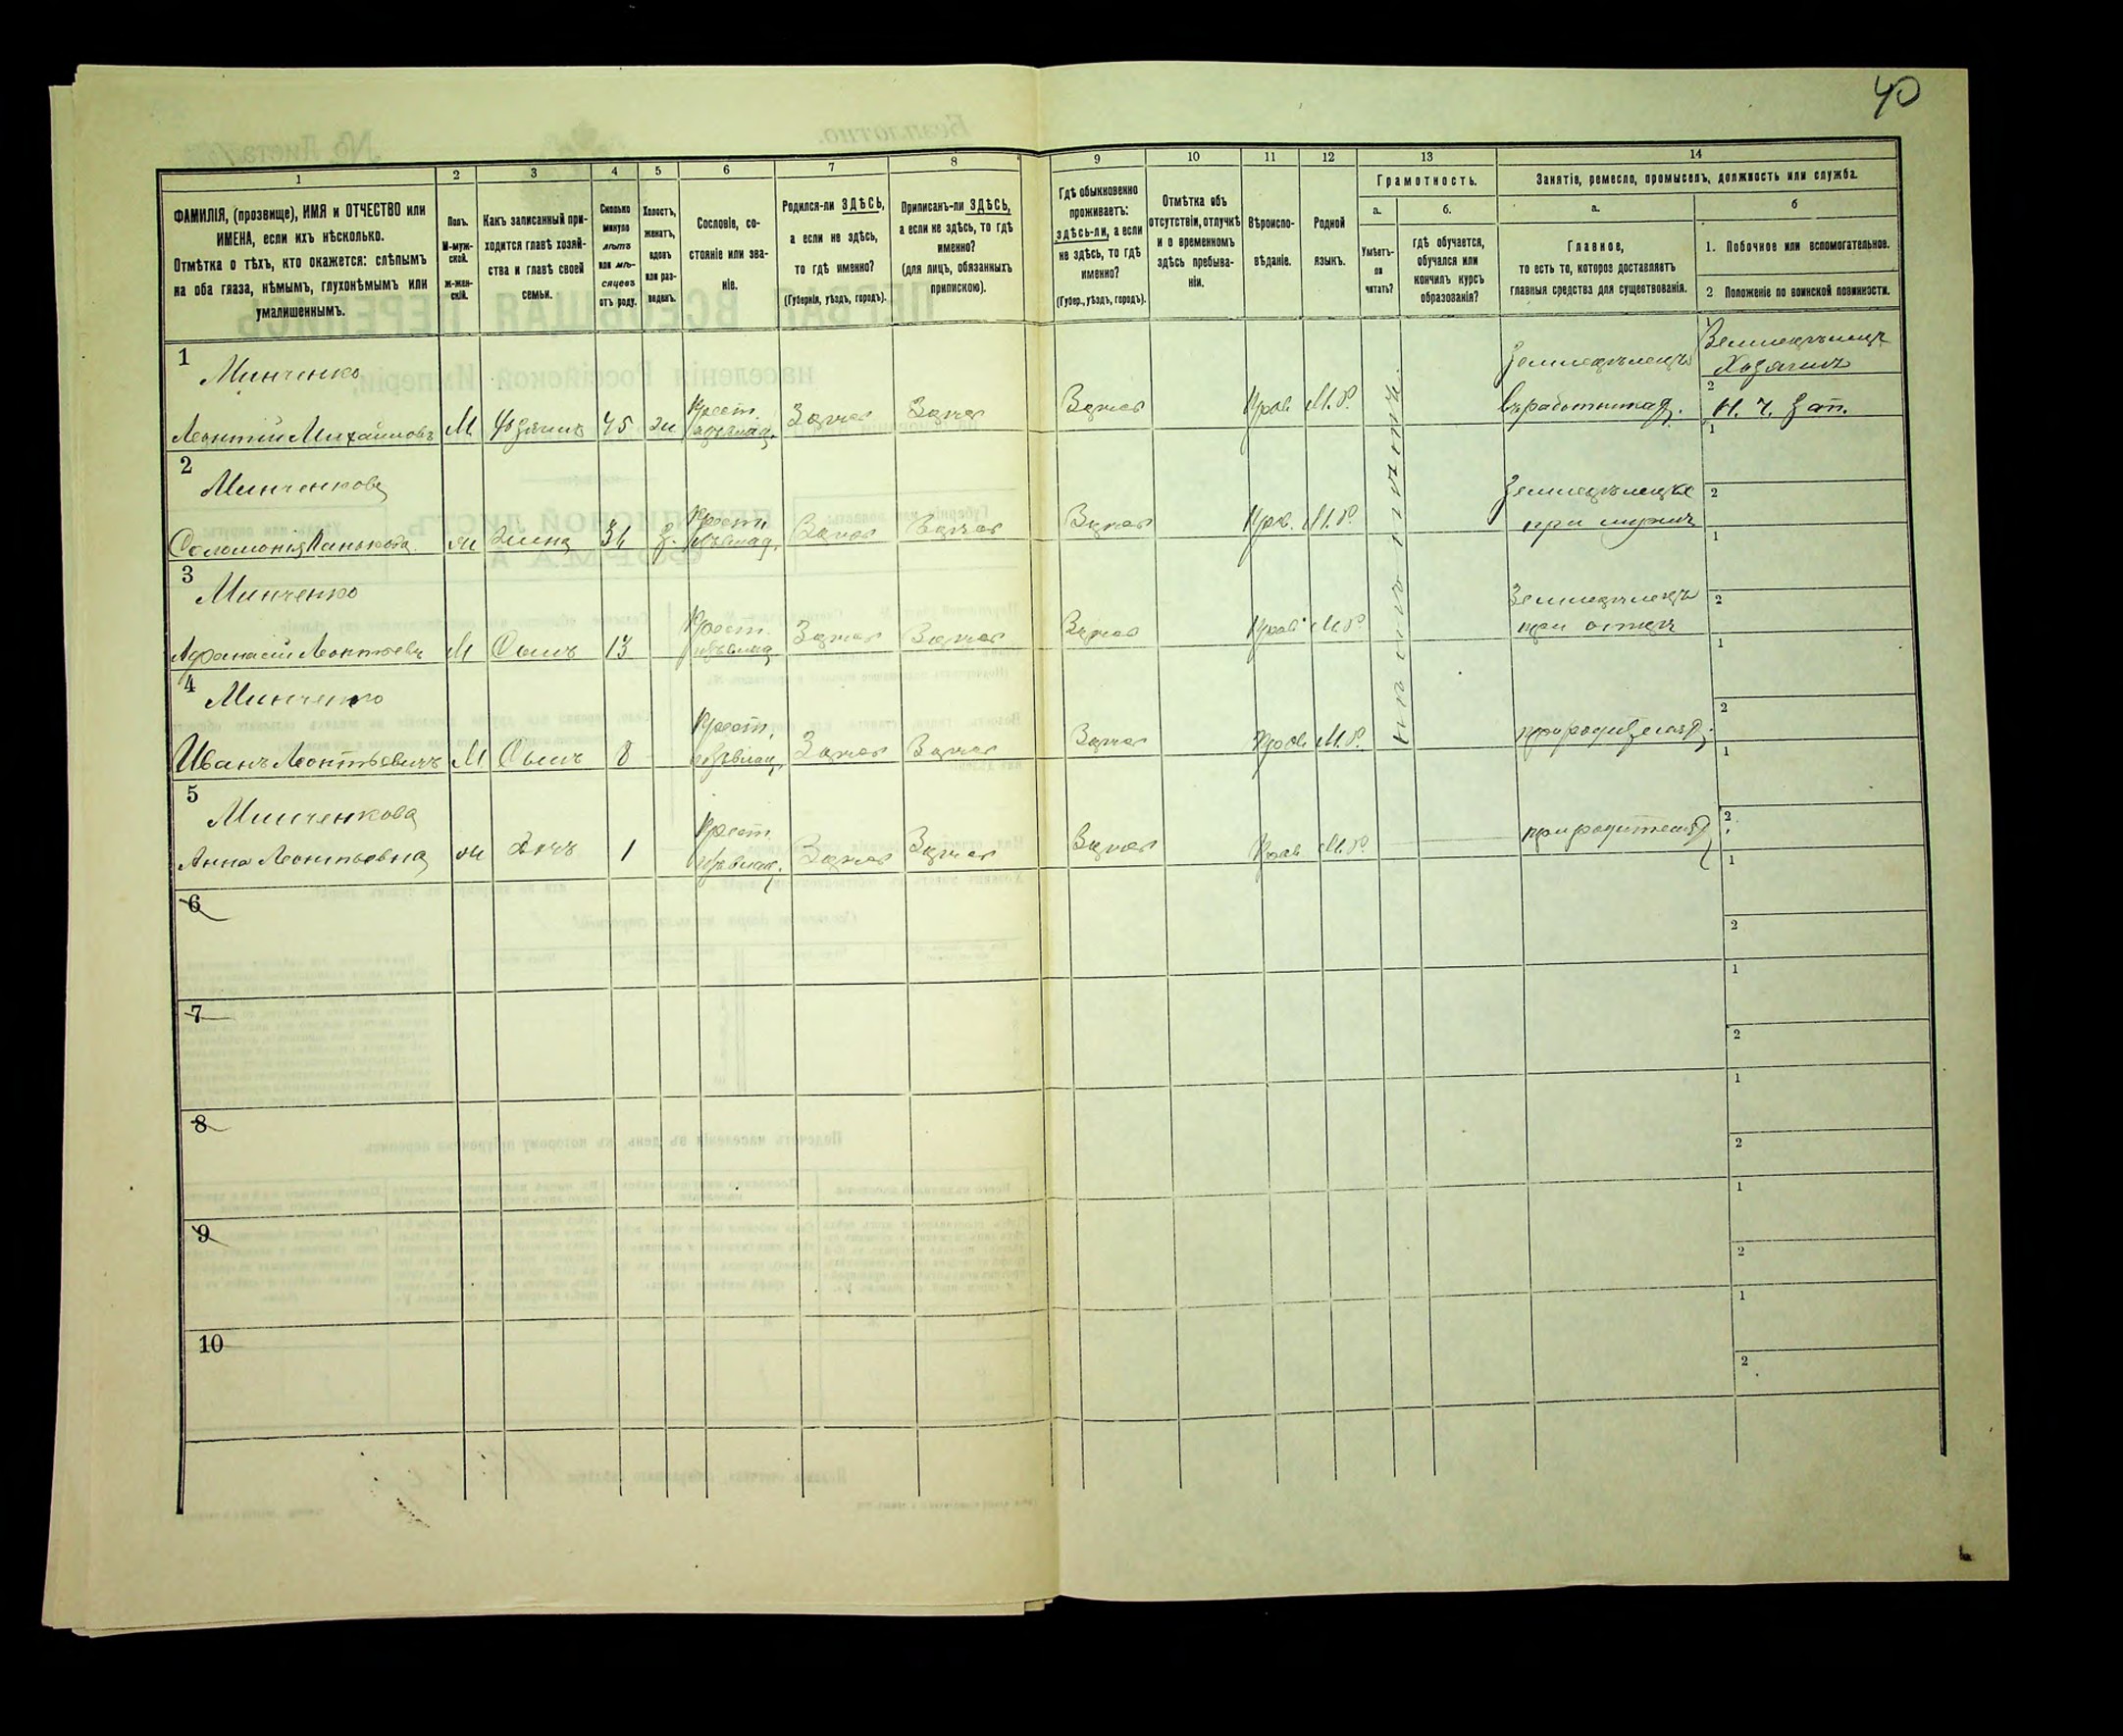 40
1
2
3
4
5
6
7
8
9
10
11
12
13
14
ФАМИЛІЯ, (прозвище), ИМЯ и ОТЧЕСТВО или
ИМЕНА, если ихъ нѣсколько.
Отмѣтка о тѣхъ, кто окажется: слѣпымъ
на оба глаза, нѣмымъ, глухонѣмымъ или
умалишеннымъ.
Полъ.
М-муж-
ской.
Ж-жен-
скій.
Какъ записанный при-
ходится главѣ хозяй-
ства и главѣ своей
семьи.
Сколько
минуло
лѣтъ
или мѣ-
сяцевъ
отъ роду.
Холостъ,
женатъ,
вдовъ
или раз-
веденъ.
Сословіе, со-
стояніе или зва-
ніе.
Родился-ли ЗДѢСЬ,
а если не здѣсь,
то гдѣ именно?
(Губернія, уѣздъ, городъ).
Приписанъ-ли ЗДѢСЬ,
а если не здѣсь, то гдѣ
именно?
(для лицъ, обязанныхъ
припискою).
Гдѣ обыкновенно
проживаетъ:
здѣсь-ли, а если
не здѣсь, то гдѣ
именно?
(Губер., уѣздъ, городъ).
Отмѣтка объ
отсутствіи, отлучкѣ
и о временномъ
здѣсь пребыва-
ніи.
Вѣроиспо-
вѣданіе.
Родной
языкъ.
Грамотность.
а.
б.
Умѣетъ-
ли
читать?
гдѣ обучается,
обучался или
кончилъ курсъ
образованія?
Занятіе, ремесло, промыселъ, должность или служба.
а.
б
Главное,
то есть то, которое доставляетъ
главныя средства для существованія.
1. Побочное или вспомогательное.
2 Положеніе по воинской повинности.
1
Минченко
Леонтій Михайловъ
М
Хозяинъ
45
Крест.
Здѣсь
Здѣсь
Здѣсь
Прав.
М. Р.
Земледѣлецъ
1
Земледѣлецъ
Хозяинъ
2
Н. Ч. Зап.
2
Минченкова
Соломонія
ж
Жена
Крест.
Здѣсь
Здѣсь
Здѣсь
Прав.
М. Р.
при мужѣ
1
2
3
Минченко
Афанасій Леонтьевъ
М
Сынъ
13
Крест.
Здѣсь
Здѣсь
Здѣсь
Прав.
М. Р.
Земледѣлецъ
при отцѣ
1
2
4
Минченко
Иванъ Леонтьевичъ
М
Сынъ
8
Крест.
Здѣсь
Здѣсь
Здѣсь
Прав.
М. Р.
1
2
5
Минченкова
Анна Леонтьевна
ж
Дочь
1
Крест.
Здѣсь
Здѣсь
Здѣсь
Прав.
М. Р.
1
2
6
1
2
7
1
2
8
1
2
9
1
2
10
1
2